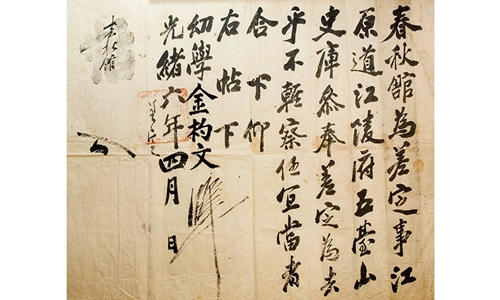 春秋館為差定事江
原道江陵府五臺山
史庫叅奉差定為去
乎不輕察任宜當者
合下仰
右帖下
幼學金杓文
光緒六年四月 日
春秋館